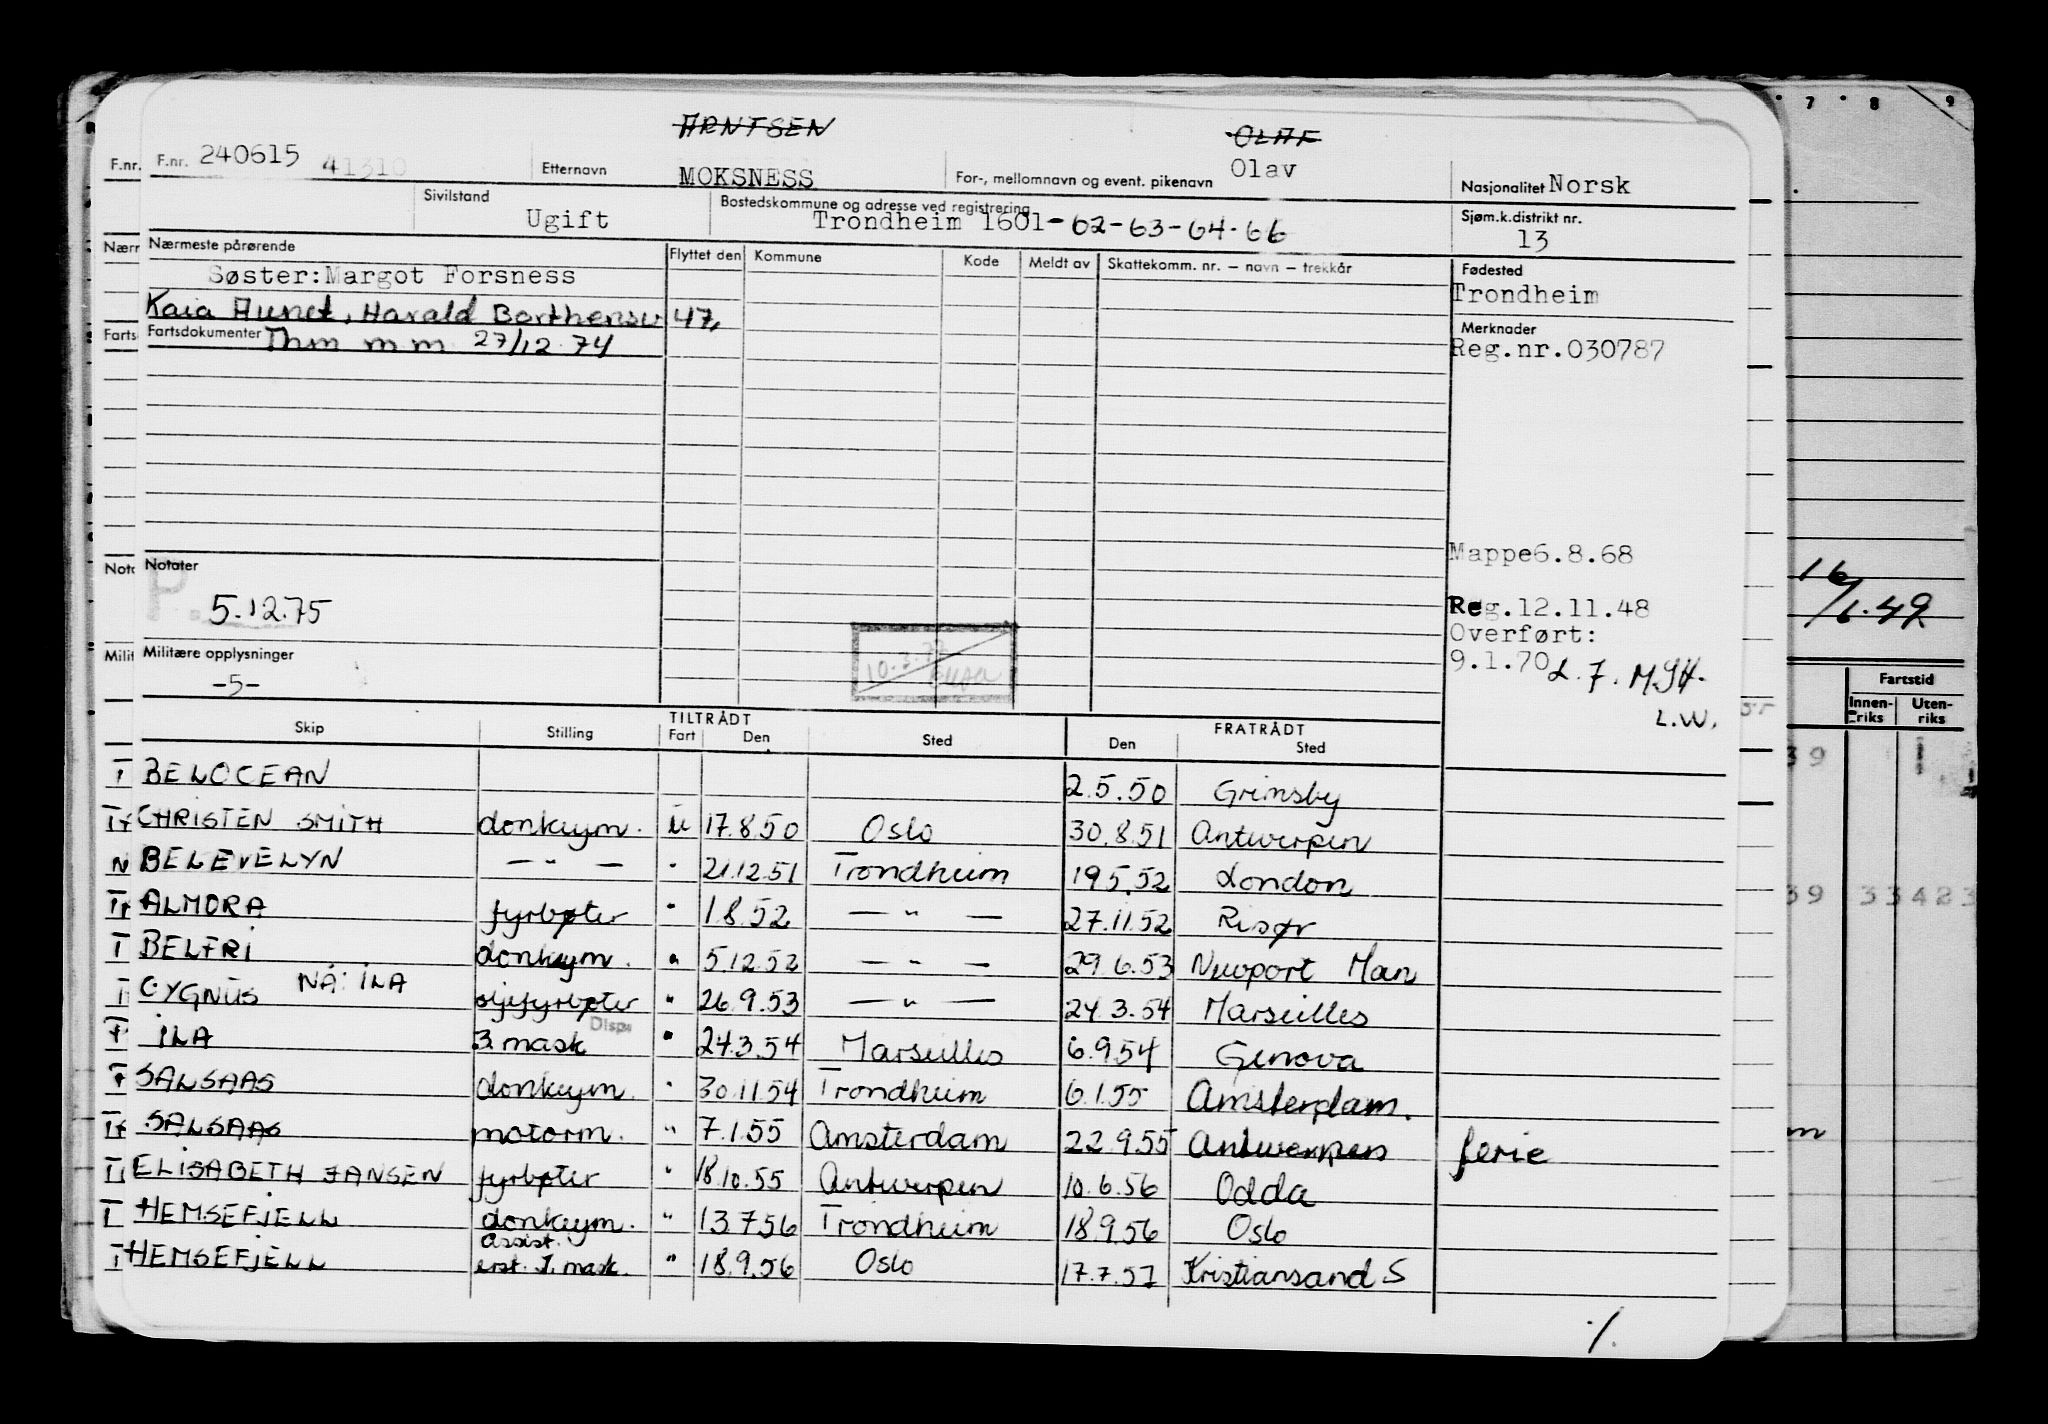 ARNTSEN OLAF
F.nr. F.nr. 240615 41310 Etternavn MOKSNESS For-, mellomnavn og event. pikenavn Olav Nasjonalitet Norsk
Sivilstand Ugift Bostedskommune og adresse ved registrering Trondheim 1601-62-63-64-66 Sjøm.k.distrikt nr. 13
Nærmeste pårørende Flyttet den Kommune Kode Meldt av Skattekomm. nr. – navn – trekkår Fødested
Søster:Margot Forsness Trondheim
Kaia Aunet, Harald 47, Merknader
Fartsdokumenter 27/12 74 Reg.nr.030787
Mappe6.8.68
Notater
5.12.75 Reg.12.11.48
Overført:
Militære opplysninger 9.1.70
-5- L.W.
16/1.49
Fartstid
Innen-riks Uten-riks
TILTRÅDT FRATRÅDT
Skip Stilling Fart Den Sted Den Sted
BELOCEAN 2.5.50 Grimsby
CHRISTEN SMITH donkeym. u 17.8.50 Oslo 30.8.51 Antwerpen
BELEVELYN — " — " 21.12.51 Trondheim 19.5.52 London
ALMORA fyrbøter " 1.8.52 — " — 27.11.52 Risør
BELFRI donkeym. " 5.12.52 — " — 29.6.53 Newport Mon
CYGNUS NÅ: ILA oljefyrbøter " 26.9.53 — " — 24.3.54 Marseilles
ILA 3 mask Disp. " 24.3.54 Marseilles 6.9.54 Genova
SALSAAS donkeym. " 30.11.54 Trondheim 6.1.55 Amsterdam.
SALSAAS motorm. " 7.1.55 Amsterdam 22.9.55 Antwerpen ferie
ELISABETH JANSEN fyrbøter " 18.10.55 Antwerpen 10.6.56 Odda
HEMSEFJELL donkeym. " 13.7.56 Trondheim 18.9.56 Oslo
HEMSEFJELL assist. erst. I. mask. " 18.9.56 Oslo 17.7.57 Kristiansand S